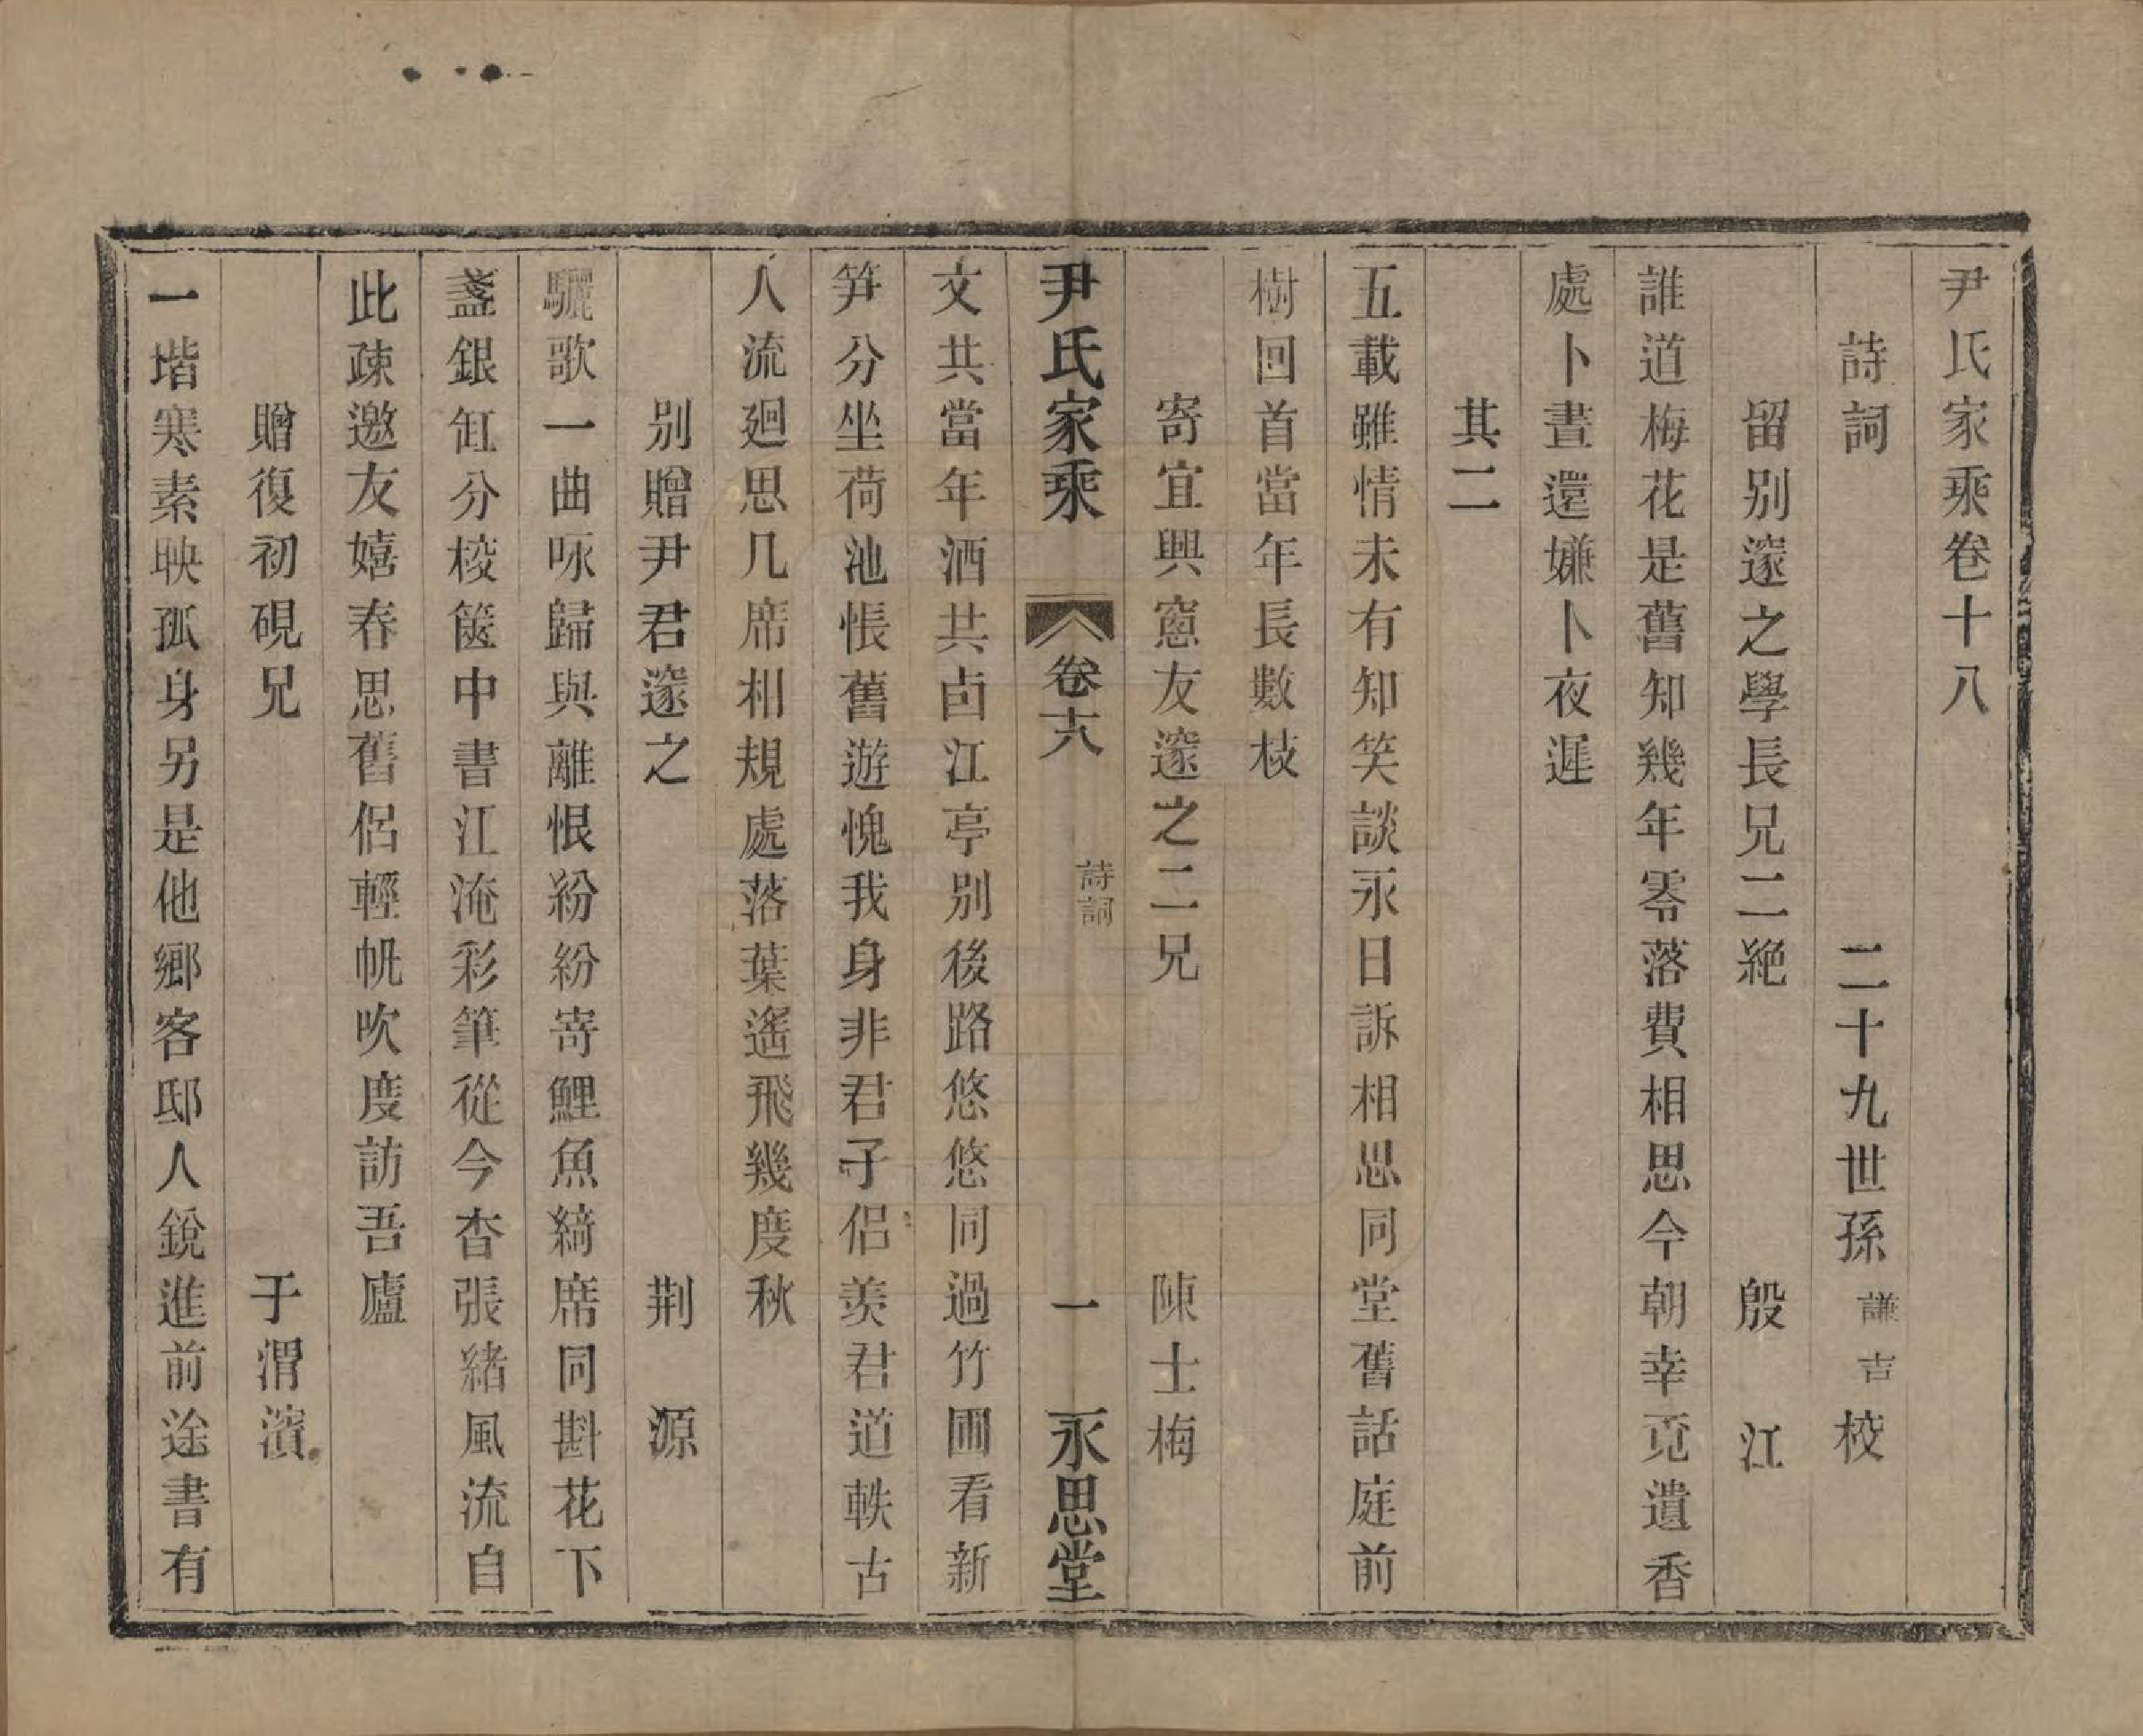 尹氏家乘卷十八
詩詞　二十九世孫謙吉校
留别邃之學長兄二絶　殷江
誰道梅花是舊知幾年零落費相思今朝幸覓遺香
處卜晝還嫌卜夜遲
其二
五載雖情未有知笑談永日訴相思同堂舊話庭前
樹回首當年長數枝
寄宜興窓友邃之二兄　陳士梅
尹氏家乘　卷十八　詩詞　一　永思堂
文共當年酒共卣江亭别後路悠悠同過竹圃看新
笋分坐荷池悵舊遊愧我身非君子侣羨君道軼古
人流廻思几席相規處落葉遙飛幾度秋
别贈尹君邃之　荆源
驪歌一曲咏歸與離恨紛紛寄鯉魚綺席同斟花下
盞銀缸分校篋中書江淹彩筆從今杳張緒風流自
此疎邀友嬉春思舊侣輕帆吹度訪吾廬
贈復初硯兄　于渭濱
一堦寒素映孤身另是他鄉客邸人銳進前途書有